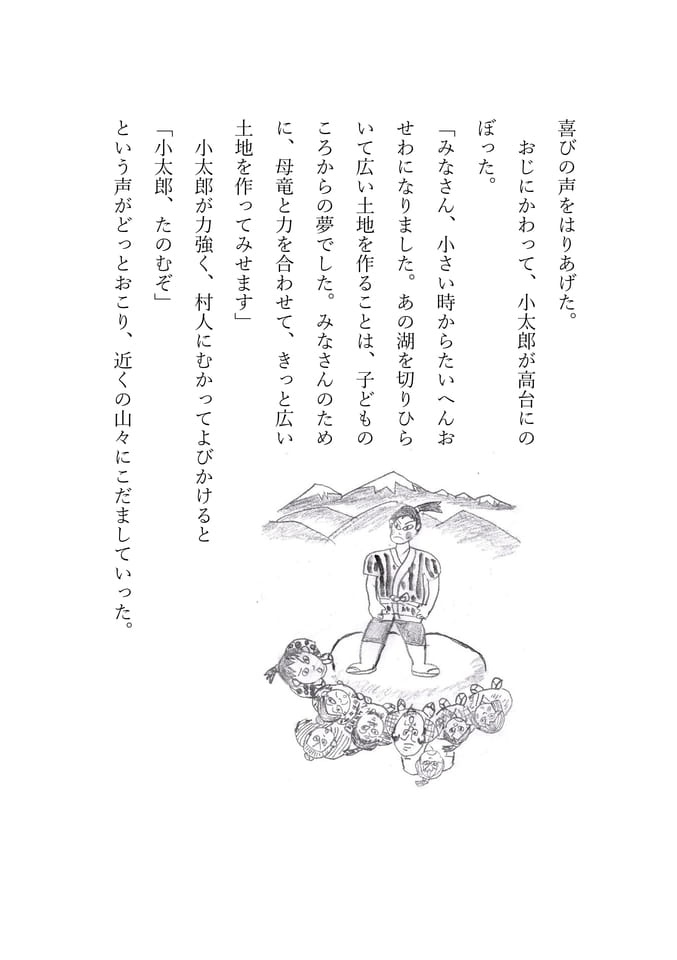 喜びの声をはりあげた。
　おじにかわって、小太郎が高台にの
ぼった。
「みなさん、小さい時からたいへんお
せわになりました。あの湖を切りひら
いて広い土地を作ることは、子どもの
ころからの夢でした。みなさんのため
に、母竜と力を合わせて、きっと広い
土地を作ってみせます」
　小太郎が力強く、村人にむかってよびかけると
「小太郎、たのむぞ」
という声がどっとおこり、近くの山々にこだましていった。